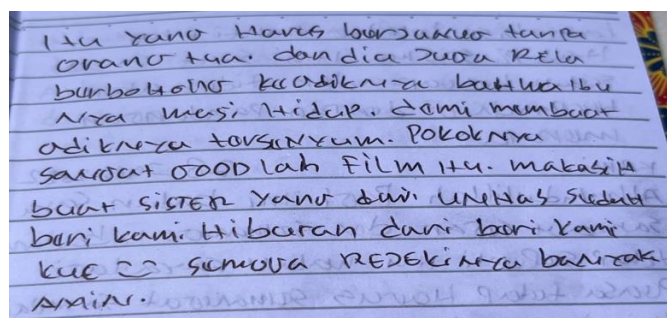 Itu yang Harus berjuang tanpa
orang tua. dan dia juga Rela
berbohong keadiknya bahwa ibu
nya masi Hidup. demi membuat
adiknya tersenyum. Pokoknya
sangat GOOD lah FiLM itu. makasih
buat SiSTER yang dari UNEHas sudah
beri kami Hiburan dani beri kami
kue semoga REDEKinya banyak
Amin.